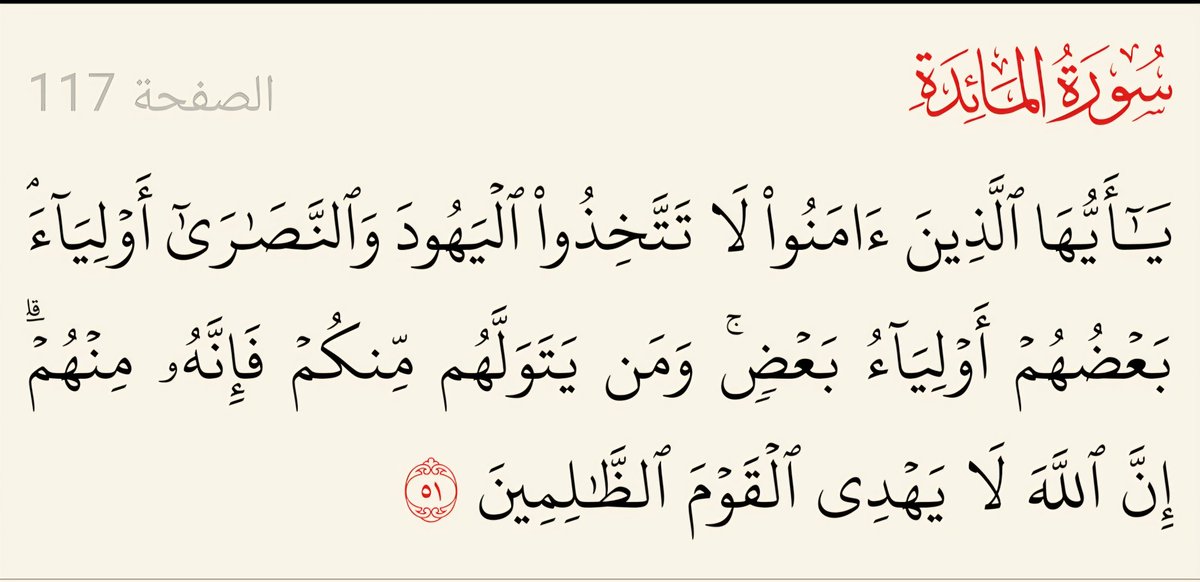 سُورَةُ المَائِدَةِ
الصفحة 117
يَـٰٓأَيُّهَا ٱلَّذِينَ ءَامَنُوا۟ لَا تَتَّخِذُوا۟ ٱلْيَهُودَ وَٱلنَّصَـٰرَىٰٓ أَوْلِيَآءَ ۘ
بَعْضُهُمْ أَوْلِيَآءُ بَعْضٍ ۚ وَمَن يَتَوَلَّهُم مِّنكُمْ فَإِنَّهُۥ مِنْهُمْ ۗ
إِنَّ ٱللَّهَ لَا يَهْدِى ٱلْقَوْمَ ٱلظَّـٰلِمِينَ ٥١